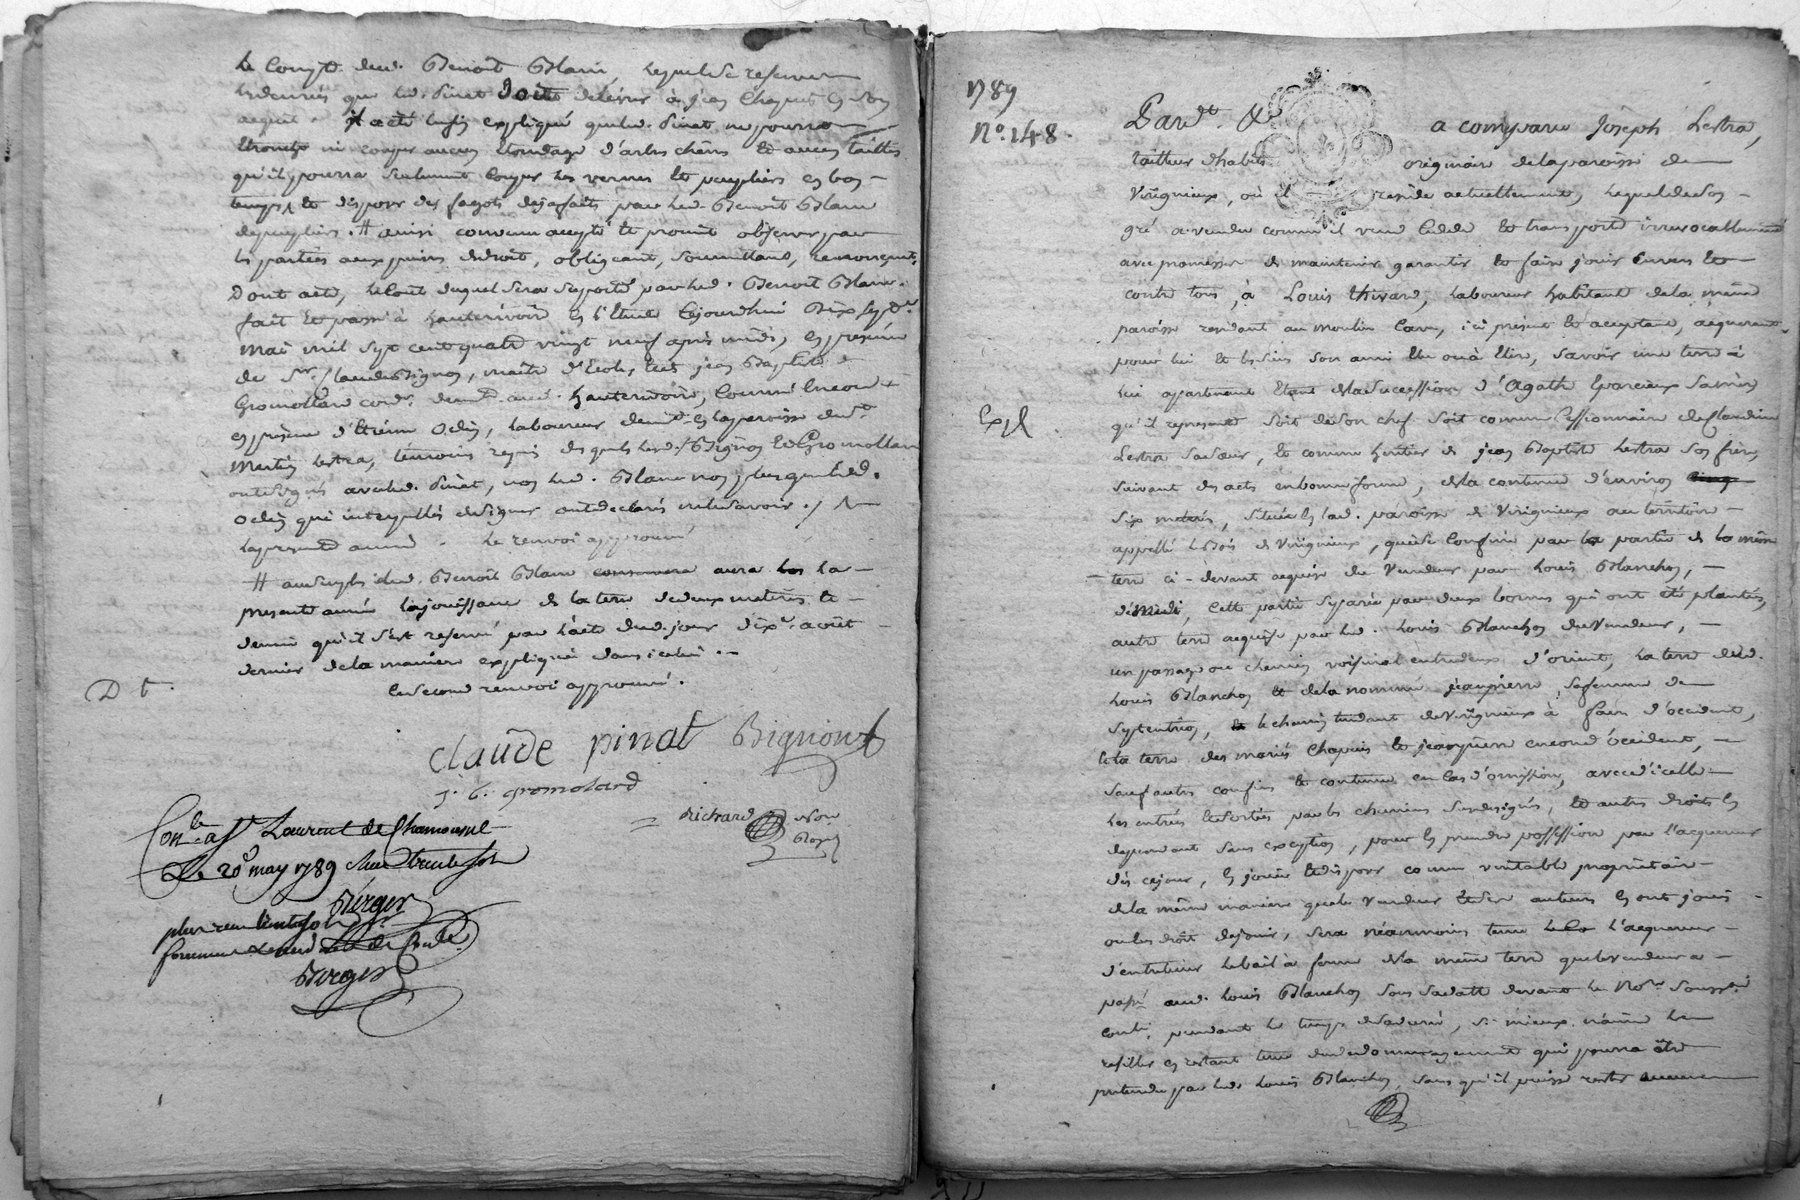 le Compte dud. Benoit Blanc, lequel se reserve
les denrées que led. Pinat doit delivrer à jean Chapuis en son
acquit. il a été enfin expliqué que led. Pinat ne pourra
ni couper aucun d'arbes chênes et aucun taillis
qu'il pourra seulement couper les vernes et peupliers en bon
temps, et disposer des fagots desja faits par led. Benoit Blanc
de peupliers. # ainsi convenu accepté et promis observer par
les parties aux peines de droit, obligeant, soumettant, renonçant,
Dont acte, le coût duquel sera suporté par led. Benoit Blanc.
fait et passé à hauterivoire en l'Etude cejourdhui Dix sept
mai mil sept cent quatre vingt neuf après midi, en presence
de Sr. Claude Bignon, maître d'Ecole, et de jean Baptiste
Gromollard cord. demt. aud. hauterivoire, comme encore
en présence d'Etienne Odin, laboureur demt. en la paroisse de St.
Martin lestra, témoins requis desquels lesd. Bignon et Gromollard
ont signé avec led. Pinat, non led. Blanc non plus que led.
Odin qui interpellés de signer ont declaré ne le savoir ./.
la presente année. le renvoi approuvé
# au surplus led. Benoit Blanc aura la
presente année la jouissance de la terre de deux meterés et
demie qu'il s'est reservé par l'acte dud. jour dix août
dernier de la maniere expliquée dans icelui.
le second renvoi approuvé.
D t.
claude pinat Bignon
j. b. gromolard
richard Nore
Royal
Conlé. a St Laurent de Chamousset
Le 20 may 1789 Recu trente sols
Berger
plus recu trente sols pr.
Berger
1789
No. 148.
Pardt. &c a comparu Joseph Lestra,
tailleur d'habits originaire de la paroisse de
Virignieux, où il reside actuellement, lequel de son
gré a vendu comme il vend cede et transporte irrevocablement
avec promesse de maintenir garantir et faire jouir envers et
contre tous, à Louis thivard, laboureur habitant de la même
paroisse residant au moulin ici présent et acceptant, acquerant
pour lui et les siens son ami élu ou à élire, savoir une terre à
lui appartenant étant de la succession d'Agathe sa mère
qu'il represente soit de son chef soit comme cessionnaire de Claudine
Expl.
Lestra sa sœur, et comme heritier de jean Baptiste Lestra son frère,
suivant des actes en bonne forme, de la contenue d'environ cinq
six meterés, située en lad. paroisse de Virignieux au territoire
appellé le Bois de Virignieux, qui se confine par la partie de la même
terre ci-devant acquise du Vendeur par Louis Blanchon,
de midi, cette partie separée par deux bornes qui ont été plantées,
autre terre acquise par led. Louis Blanchon du Vendeur,
un passage ou chemin voisinal entre deux d'orient, la terre dud.
Louis Blanchon et de la nommée jeanpierre, sa femme de
septentrion, le chemin tendant de Virignieux à d'occident,
et la terre des mariés Chapuis et jeanpierre encore d'occident,
sauf autres confins et contenue en cas d'omission, avec d'icelle
les entrées et sorties par les chemins susdesignés, et autres droits en
dependant sans exception, pour en prendre possession par l'acquereur
dès cejour, en jouir et disposer comme veritable proprietaire
de la même maniere que le Vendeur et ses auteurs en ont joui
ou eu droit de jouir, sera néanmoins tenu l'acquereur
d'entretenir le bail à ferme de la même terre que le vendeur a
passé aud. Louis Blanchon sous sa datte devant le Nore. soussé.
contlé. pendant le temps de sa durée, si mieux n'aime le
resillier en restant tenu du dedomagement qui pourra être
pretendu par led. Louis Blanchon, sans qu'il puisse rester aucune